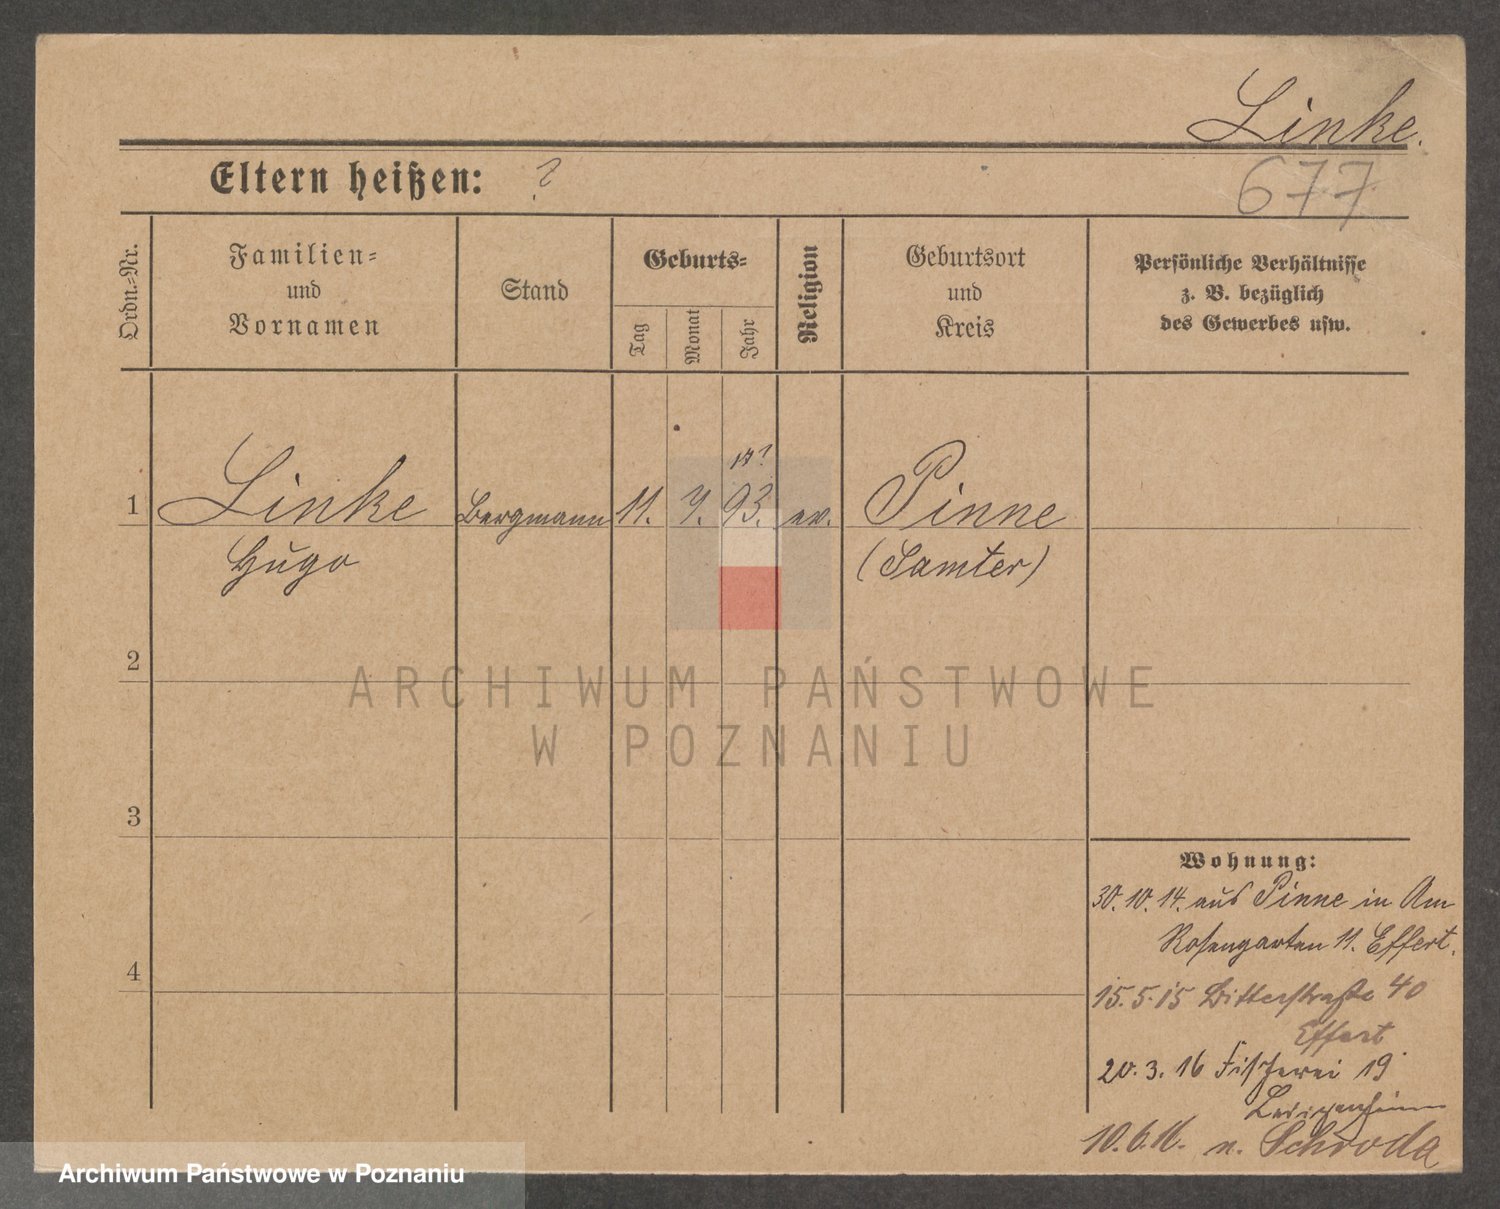 Linke.
Eltern heißen: ?
677
Ordn.-Nr.
Familien-
und
Vornamen
Stand
Geburts-
Tag
Monat
Jahr
Religion
Geburtsort
und
Kreis
Persönliche Verhältnisse
z. B. bezüglich
des Gewerbes usw.
1 Linke Bergmann 11. 7. 93. ev. Pinne
Hugo (Samter)
2
ARCHIWUM PAŃSTWOWE
W POZNANIU
3
Wohnung:
30.10.14. aus Pinne in Am
Rosengarten 11. Effert.
4
15.5.15 Bitterstraße 40
Effert
20.3.16 Fischerei 19
10.6.16. n. Schroda
Archiwum Państwowe w Poznaniu